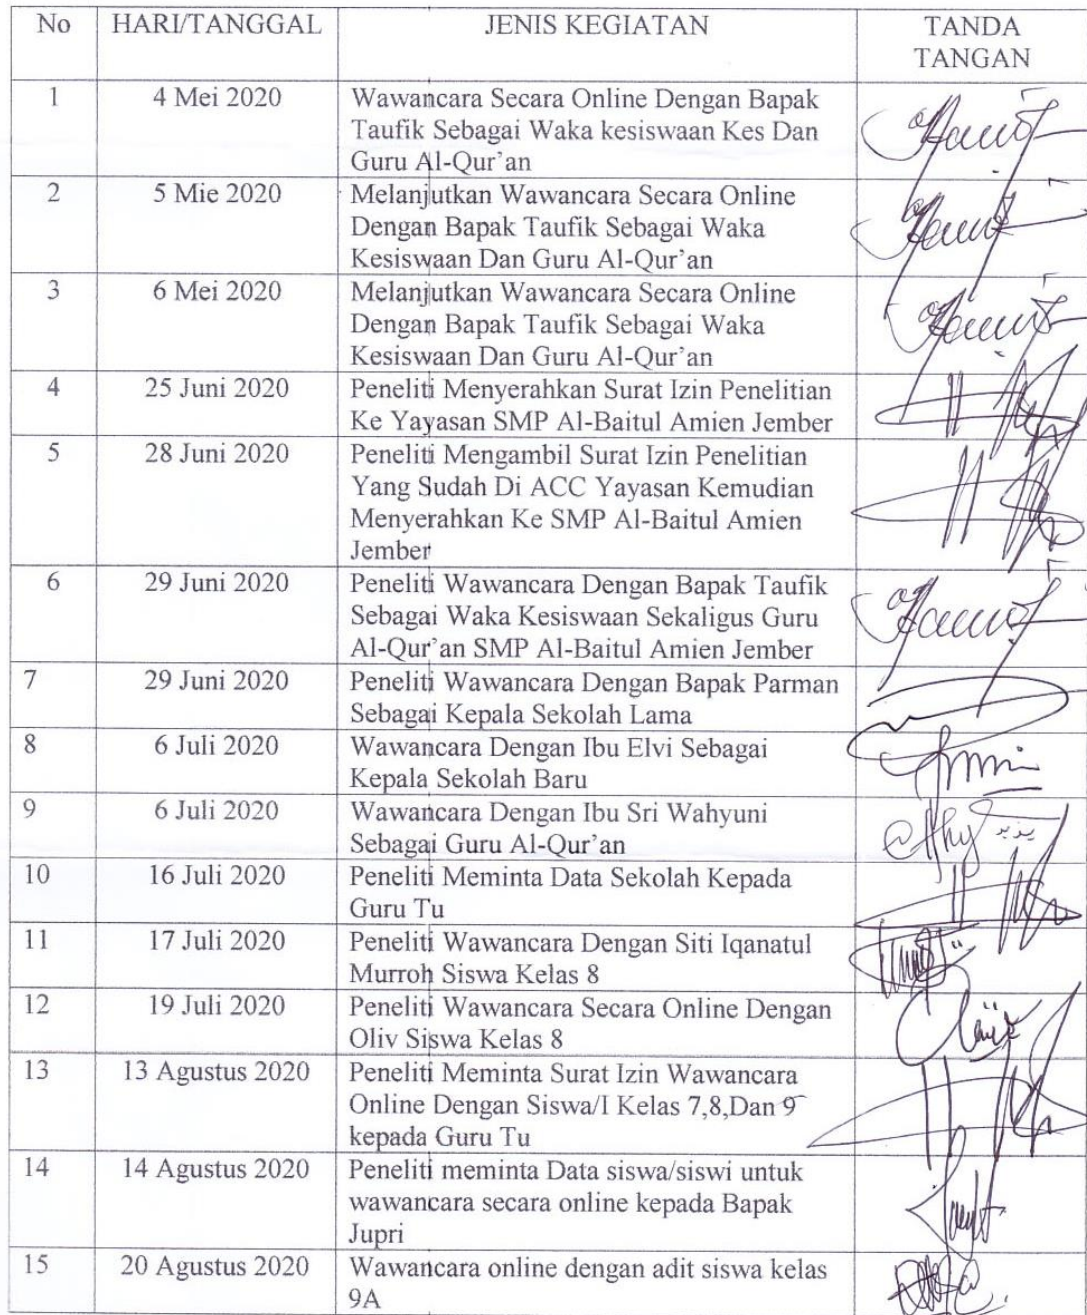 No HARI/TANGGAL JENIS KEGIATAN TANDA
TANGAN
1 4 Mei 2020 Wawancara Secara Online Dengan Bapak
Taufik Sebagai Waka kesiswaan Kes Dan
Guru Al-Qur'an
2 5 Mie 2020 Melanjutkan Wawancara Secara Online
Dengan Bapak Taufik Sebagai Waka
Kesiswaan Dan Guru Al-Qur'an
3 6 Mei 2020 Melanjutkan Wawancara Secara Online
Dengan Bapak Taufik Sebagai Waka
Kesiswaan Dan Guru Al-Qur'an
4 25 Juni 2020 Peneliti Menyerahkan Surat Izin Penelitian
Ke Yayasan SMP Al-Baitul Amien Jember
5 28 Juni 2020 Peneliti Mengambil Surat Izin Penelitian
Yang Sudah Di ACC Yayasan Kemudian
Menyerahkan Ke SMP Al-Baitul Amien
Jember
6 29 Juni 2020 Peneliti Wawancara Dengan Bapak Taufik
Sebagai Waka Kesiswaan Sekaligus Guru
Al-Qur'an SMP Al-Baitul Amien Jember
7 29 Juni 2020 Peneliti Wawancara Dengan Bapak Parman
Sebagai Kepala Sekolah Lama
8 6 Juli 2020 Wawancara Dengan Ibu Elvi Sebagai
Kepala Sekolah Baru
9 6 Juli 2020 Wawancara Dengan Ibu Sri Wahyuni
Sebagai Guru Al-Qur'an
10 16 Juli 2020 Peneliti Meminta Data Sekolah Kepada
Guru Tu
11 17 Juli 2020 Peneliti Wawancara Dengan Siti Iqanatul
Murroh Siswa Kelas 8
12 19 Juli 2020 Peneliti Wawancara Secara Online Dengan
Oliv Siswa Kelas 8
13 13 Agustus 2020 Peneliti Meminta Surat Izin Wawancara
Online Dengan Siswa/I Kelas 7,8,Dan 9
kepada Guru Tu
14 14 Agustus 2020 Peneliti meminta Data siswa/siswi untuk
wawancara secara online kepada Bapak
Jupri
15 20 Agustus 2020 Wawancara online dengan adit siswa kelas
9A